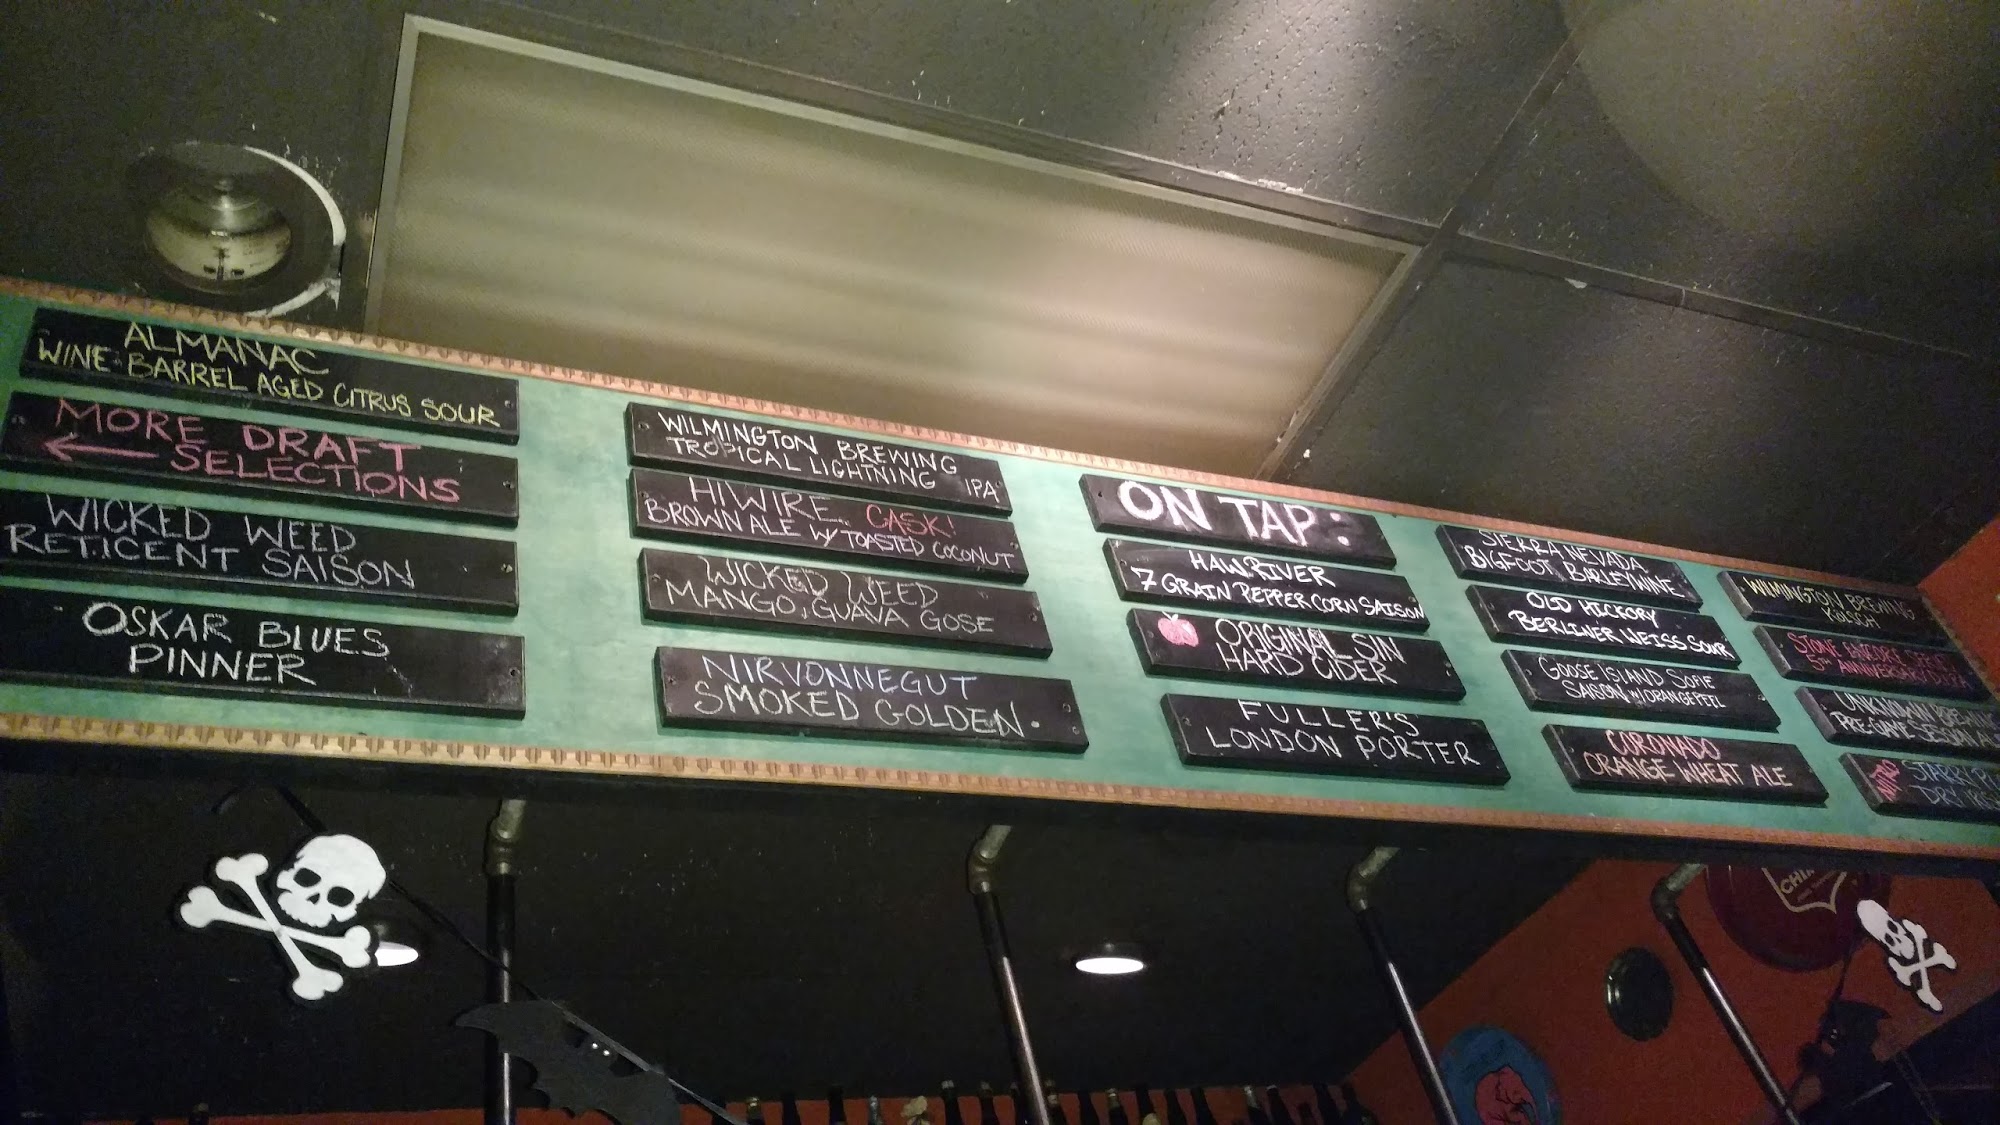 ALMANAC
WINE-BARREL AGED CITRUS SOUR
MORE DRAFT
SELECTIONS
WICKED WEED
RETICENT SAISON
OSKAR BLUES
PINNER
WILMINGTON BREWING
TROPICAL LIGHTNING IPA
HIWIRE CASK!
BROWN ALE W/ TOASTED COCONUT
WICKED WEED
MANGO, GUAVA GOSE
NIRVONNEGUT
SMOKED GOLDEN.
ON TAP:
HAW RIVER
7 GRAIN PEPPERCORN SAISON
ORIGINAL SIN
HARD CIDER
FULLER'S
LONDON PORTER
SIERRA NEVADA
BIGFOOT BARLEYWINE
OLD HICKORY
BERLINER WEISS SOUR
GOOSE ISLAND SOFIE
SAISON W/ ORANGE PEEL
CORONADO
ORANGE WHEAT ALE
WILMINGTON BREWING
KÖLSCH
STONE ENCORE SERIES
5TH ANNIVERSARY DIPA
UNKNOWN
PRE-GAME SESSION
NITRO STARR
DRY